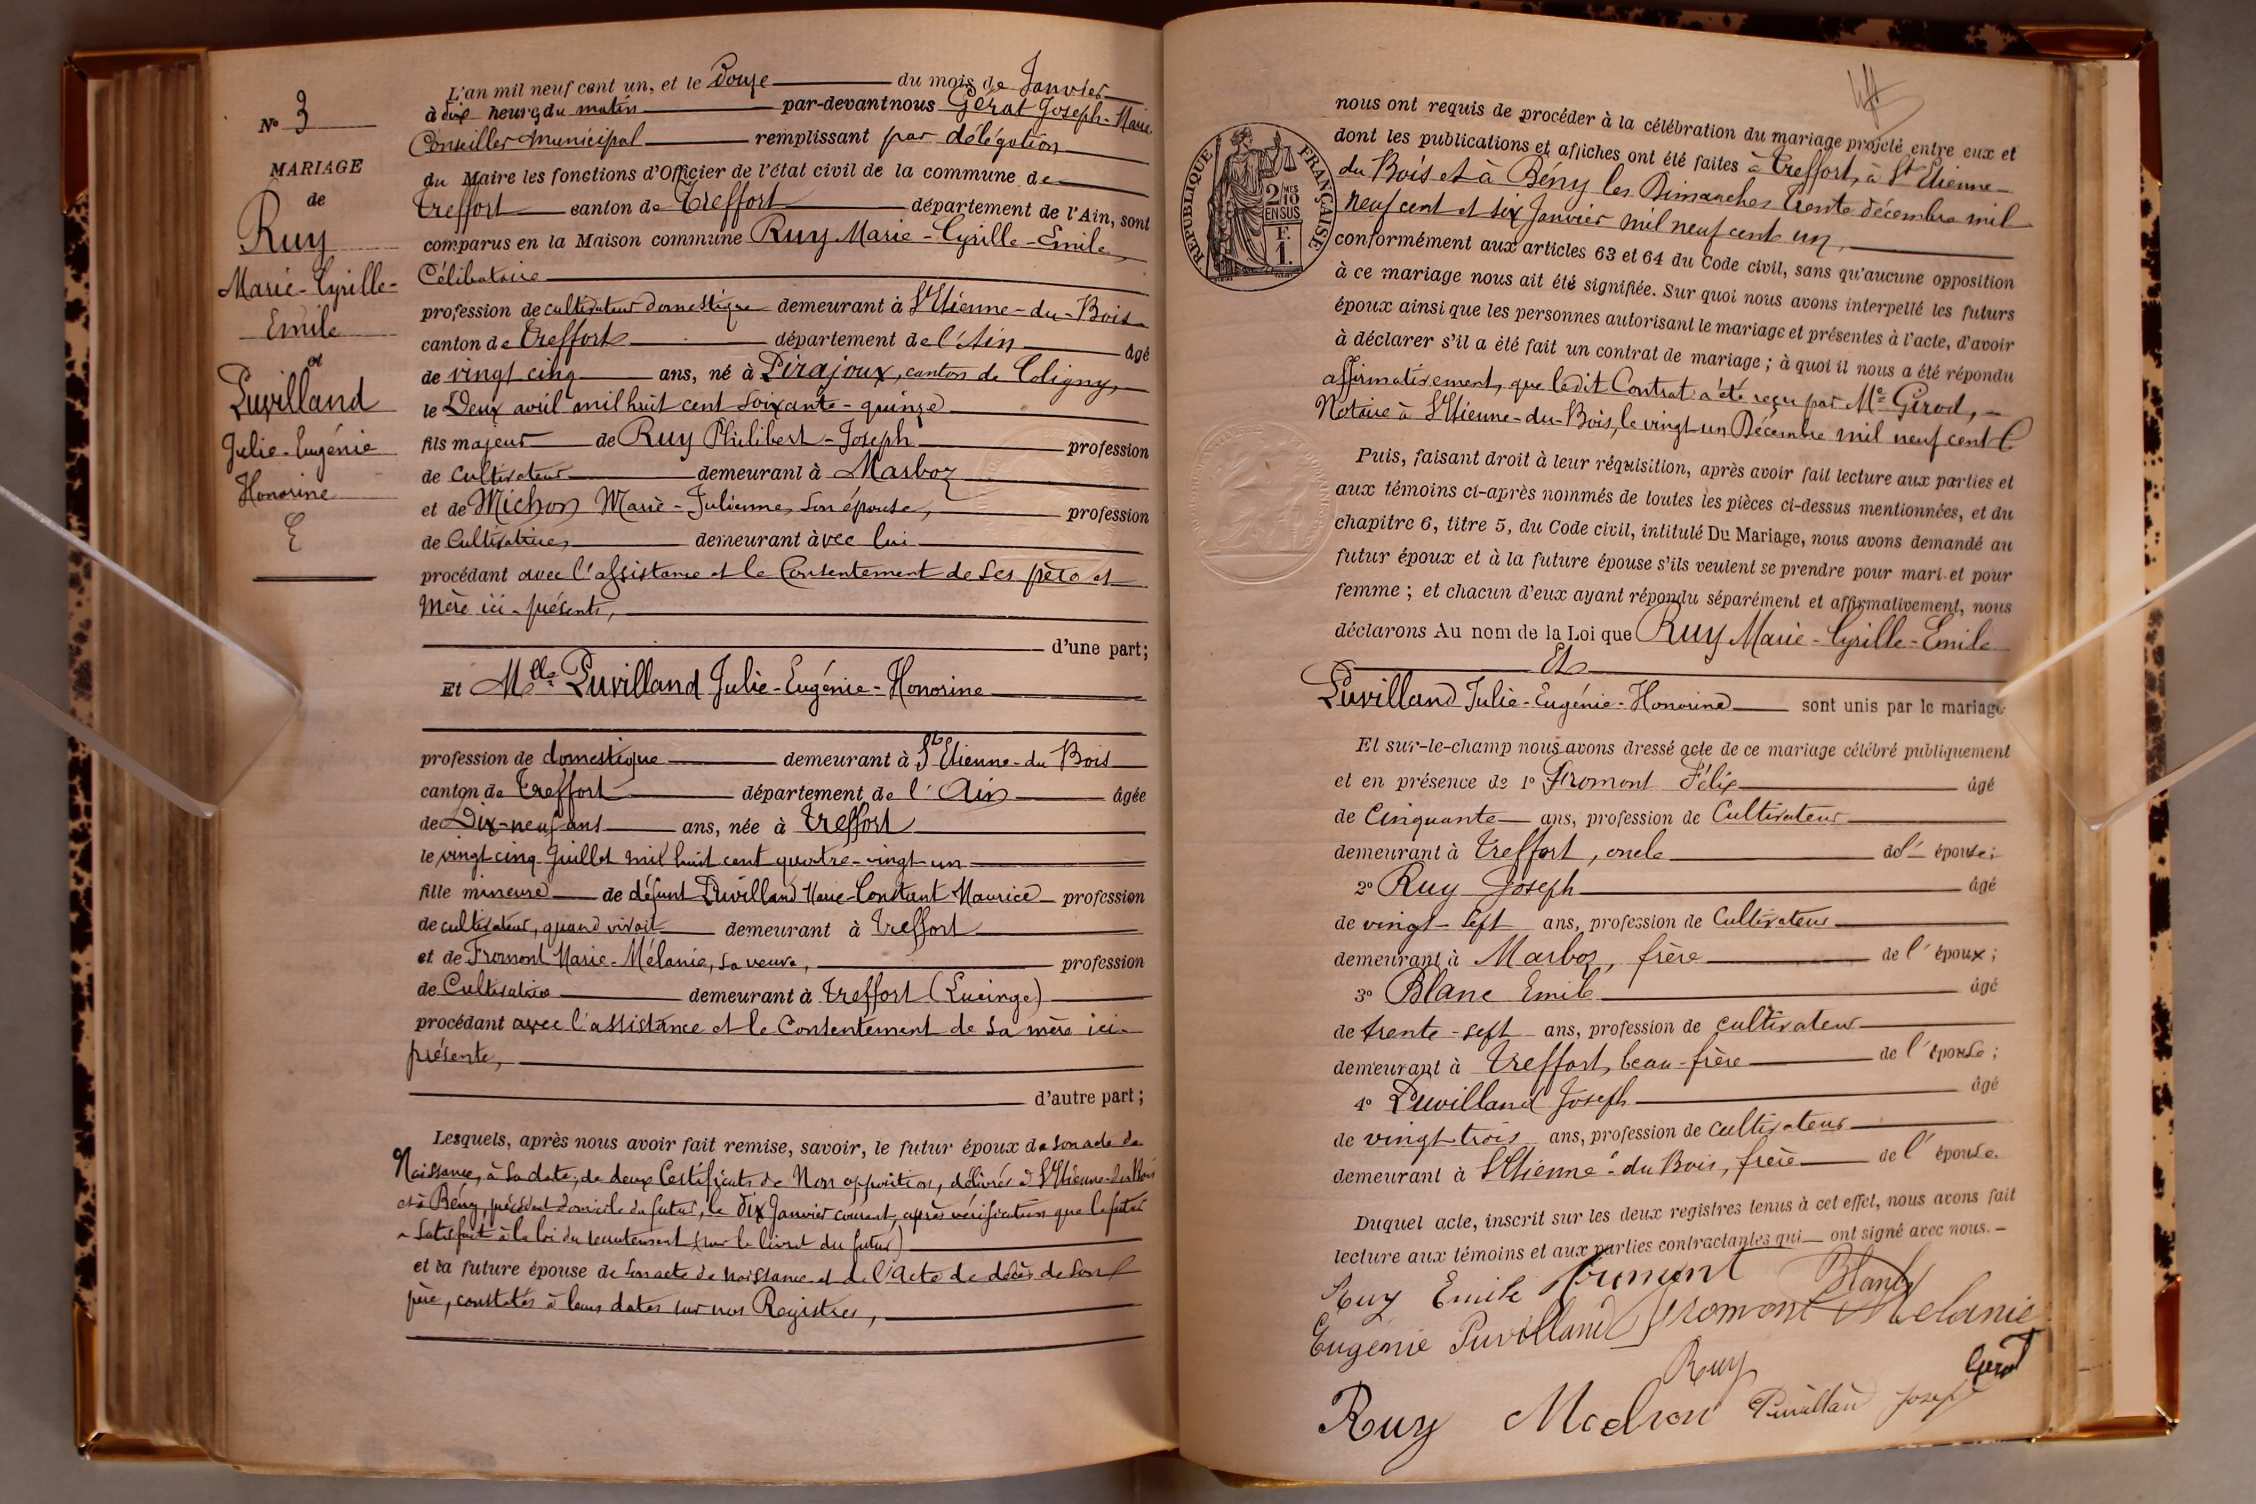 N° 3
MARIAGE
de
Ruy
Marie-Cyrille-
Emile
et
Puvilland
Julie-Eugénie
Honorine
E
L'an mil neuf cent un, et le Douze du mois de Janvier
à dix heures du matin par-devant nous Gérat Joseph-Marie
Conseiller Municipal remplissant par délégation
du Maire les fonctions d'Officier de l'état civil de la commune de
Treffort canton de Treffort département de l'Ain, sont
comparus en la Maison commune Ruy Marie-Cyrille-Emile,
Célibataire
profession de cultivateur domestique demeurant à St Etienne-du-Bois
canton de Treffort département de l'Ain âgé
de vingt cinq ans, né à Pirajoux, canton de Coligny,
le Deux avril mil huit cent soixante-quinze
fils majeur de Ruy Philibert-Joseph profession
de cultivateur demeurant à Marboz
et de Michon Marie-Julienne, son épouse, profession
de Cultivatrice, demeurant avec lui
procédant avec l'assistance et le Consentement de ses père et
mère ici-présents,
d'une part;
Et Mlle Puvilland Julie-Eugénie-Honorine
profession de domestique demeurant à St Etienne-du Bois
canton de Treffort département de l'Ain âgée
de Dix-neuf ans ans, née à Treffort
le vingt cinq Juillet mil huit cent quatre-vingt-un
fille mineure de défunt Puvilland Marie-Constant Maurice profession
de cultivateur, quand vivait demeurant à Treffort
et de Fromont Marie-Mélanie, sa veuve, profession
de Cultivatrice demeurant à Treffort (Lucinge)
procédant avec l'assistance et le Consentement de sa mère ici-
présente,
d'autre part;
Lesquels, après nous avoir fait remise, savoir, le futur époux de son acte de
Naissance, à sa date, de deux Certificats de Non opposition, délivrés à St Etienne-du Bois
et à Bény, précédent domicile du futur, le Dix Janvier courant, après vérification que le futur
a satisfait à la loi du recrutement (sur le livret du futur)
et la future épouse de son acte de naissance et de l'acte de décès de son
père, constatés à leurs dates sur nos Registres,
nous ont requis de procéder à la célébration du mariage projeté entre eux et
dont les publications et affiches ont été faites à Treffort, à St Etienne-
du Bois et à Bény les Dimanches Trente décembre mil
neuf cent et six Janvier mil neuf cent un,
conformément aux articles 63 et 64 du Code civil, sans qu'aucune opposition
à ce mariage nous ait été signifiée. Sur quoi nous avons interpellé les futurs
époux ainsi que les personnes autorisant le mariage et présentes à l'acte, d'avoir
à déclarer s'il a été fait un contrat de mariage; à quoi il nous a été répondu
affirmativement, que ledit Contrat a été reçu par Me Girod,
Notaire à St Etienne-du-Bois, le vingt un Décembre mil neuf cent
Puis, faisant droit à leur réquisition, après avoir fait lecture aux parties et
aux témoins ci-après nommés de toutes les pièces ci-dessus mentionnées, et du
chapitre 6, titre 5, du Code civil, intitulé Du Mariage, nous avons demandé au
futur époux et à la future épouse s'ils veulent se prendre pour mari et pour
femme; et chacun d'eux ayant répondu séparément et affirmativement, nous
déclarons Au nom de la Loi que Ruy Marie-Cyrille-Emile
Et
Puvilland Julie-Eugénie-Honorine sont unis par le mariage
Et sur-le-champ nous avons dressé acte de ce mariage célébré publiquement
et en présence de 1° Fromont Félix âgé
de Cinquante ans, profession de Cultivateur
demeurant à Treffort, oncle de l'épouse;
2° Ruy Joseph âgé
de vingt-sept ans, profession de Cultivateur
demeurant à Marboz, frère de l'époux;
3° Blanc Emile âgé
de trente-sept ans, profession de cultivateur
demeurant à Treffort, beau-frère de l'épouse;
4° Puvilland Joseph âgé
de vingt trois ans, profession de cultivateur
demeurant à St Etienne-du Bois, frère de l'épouse.
Duquel acte, inscrit sur les deux registres tenus à cet effet, nous avons fait
lecture aux témoins et aux parties contractantes qui ont signé avec nous.
Ruy Emile Fromont Blanc
Eugénie Puvilland Fromont Melanie
Ruy Gérat
Ruy Michon Puvilland Joseph
RÉPUBLIQUE FRANÇAISE
2 MES 10
EN SUS
F.
1.